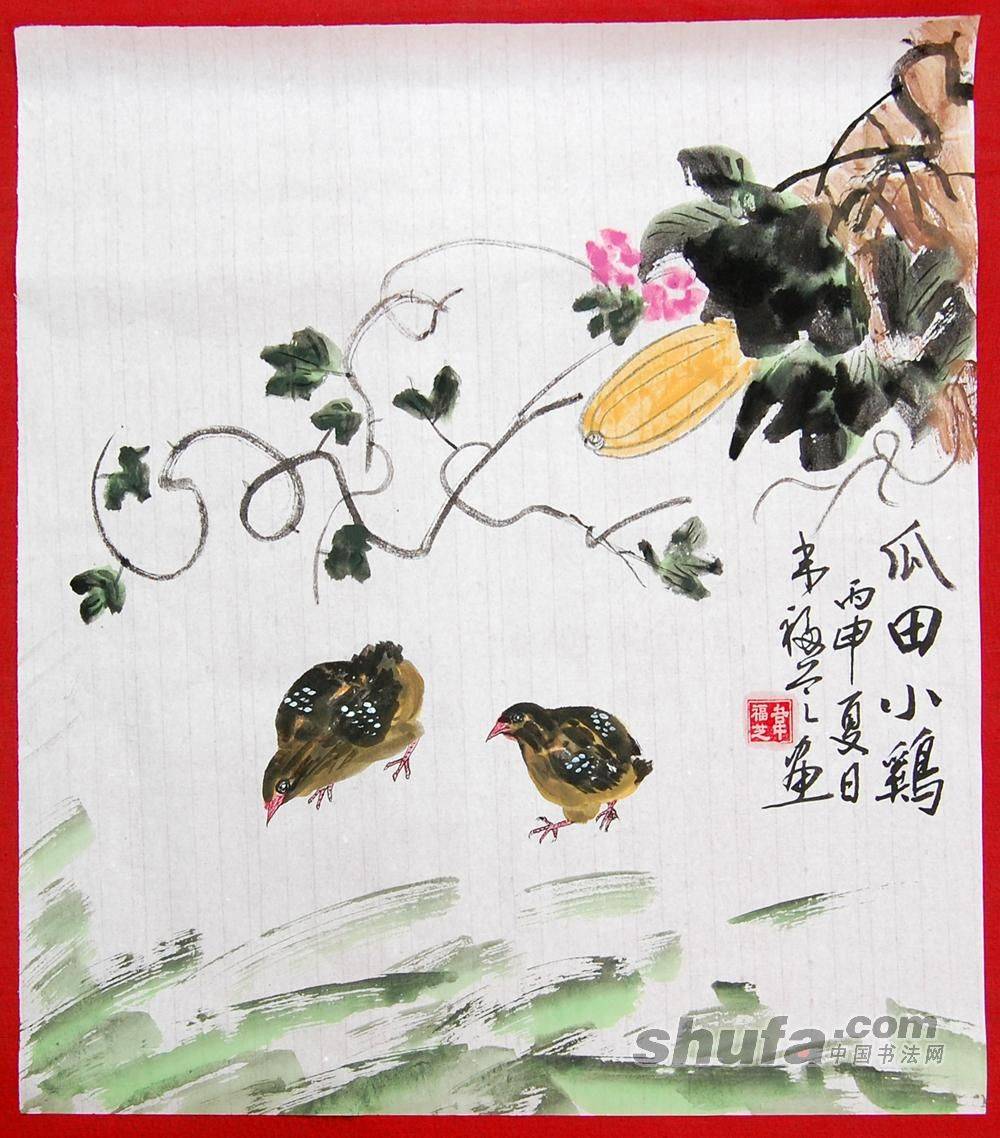 瓜田小鷄
丙申夏日
韦福芝画
韋福芝
shufa.com
中国书法网